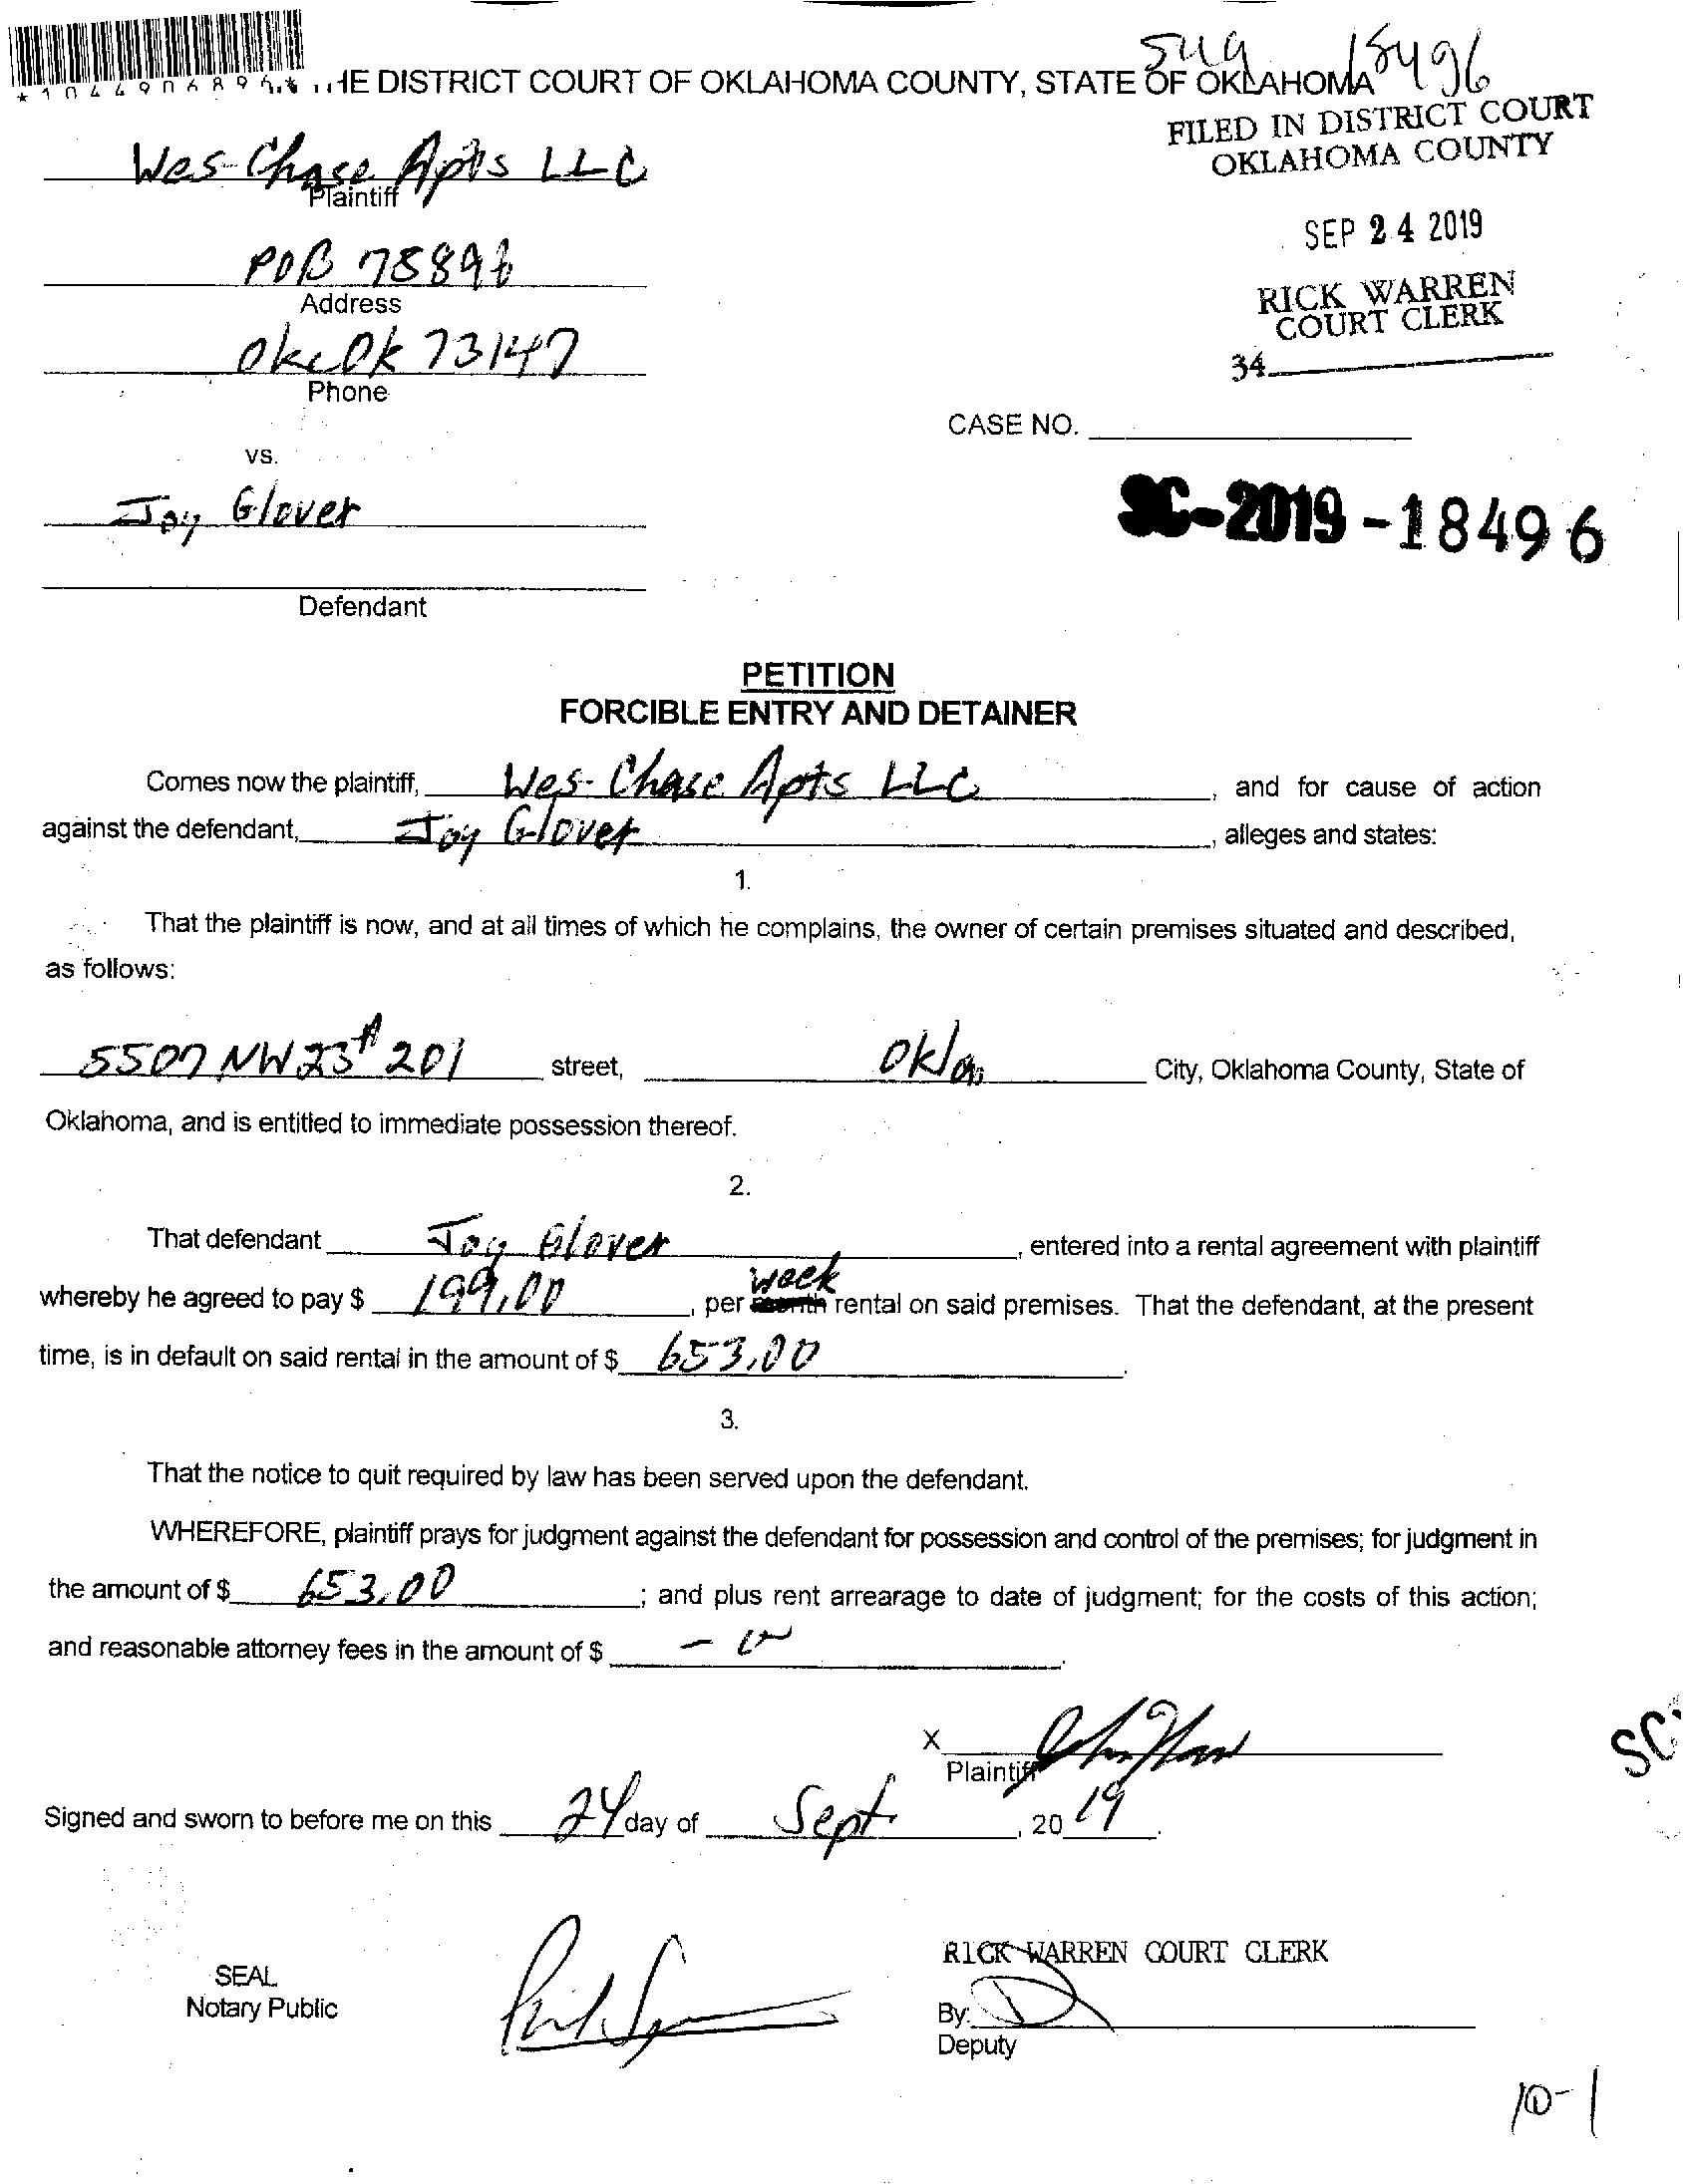 HE DISTRICT COURT OF OKLAHOMA COUNTY, STATE OF OKLAHOMA
18496
FILED IN DISTRICT COURT
OKLAHOMA COUNTY
Wes-Chase Apts LLC
Plaintiff
SEP 24 2019
POB 75896
Address
RICK WARREN
COURT CLERK
Okc Ok 73147
Phone
34
CASE NO.
vs.
SC-2019-18496
Joy Glover
Defendant
PETITION
FORCIBLE ENTRY AND DETAINER
Comes now the plaintiff, Wes-Chase Apts LLC, and for cause of action
against the defendant, Joy Glover, alleges and states:
1.
That the plaintiff is now, and at all times of which he complains, the owner of certain premises situated and described,
as follows:
5507 NW 23rd 201 street, Okla City, Oklahoma County, State of
Oklahoma, and is entitled to immediate possession thereof.
2.
That defendant Joy Glover, entered into a rental agreement with plaintiff
whereby he agreed to pay $ 199.00, per month week rental on said premises. That the defendant, at the present
time, is in default on said rental in the amount of $ 653.00.
3.
That the notice to quit required by law has been served upon the defendant.
WHEREFORE, plaintiff prays for judgment against the defendant for possession and control of the premises; for judgment in
the amount of $ 653.00; and plus rent arrearage to date of judgment; for the costs of this action;
and reasonable attorney fees in the amount of $
X
Plaintiff
Signed and sworn to before me on this 24 day of Sept, 20 19.
RICK WARREN COURT CLERK
SEAL
Notary Public
By:
Deputy
10-1
SC